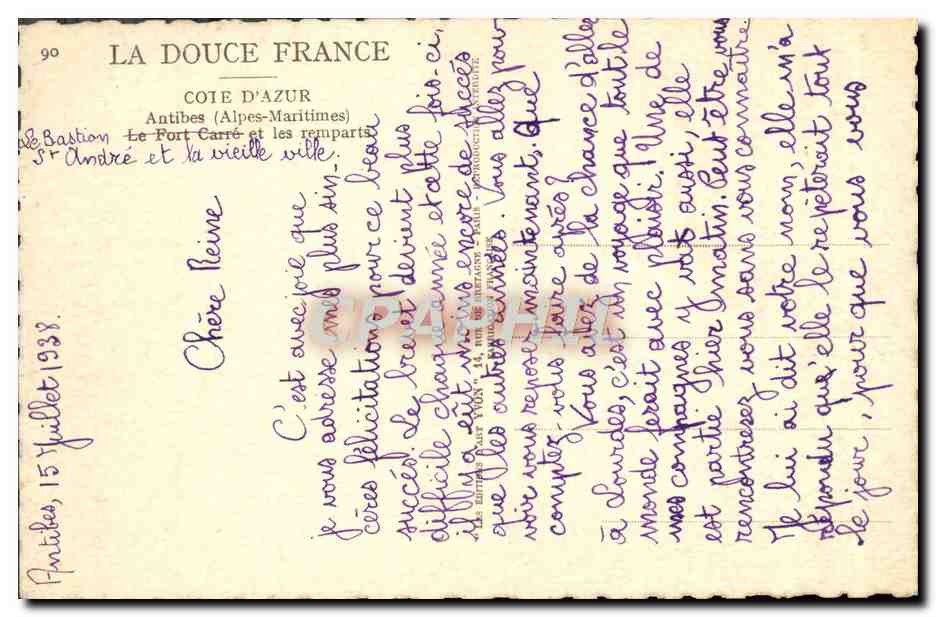 90
LA DOUCE FRANCE
COTE D'AZUR
Antibes (Alpes-Maritimes)
Le Fort Carré et les remparts
Le Bastion
St André et la vieille ville.
Antibes, 15 Juillet 1938.
Chère Reine
C'est avec joie que
je vous adresse mes plus sin-
cères félicitations pour ce beau
succès. Le brevet devient plus
difficile chaque année et cette fois-ci,
il y a eût moins encore de succès
que les autres années. Vous allez pou-
voir vous reposer maintenant. Que
comptez-vous faire après?
Vous avez de la chance d'aller
à Lourdes, c'est un voyage que tout le
monde ferait avec plaisir! Une de
mes compagnes y va aussi, elle
est partie hier matin. Peut être vous
rencontrerez vous sans vous connaître.
Je lui ai dit votre nom, elle m'a
répondu qu'elle le répèterait tout
le jour, pour que vous vous
"LES EDITIONS D'ART YVON" 14, RUE DE BRETAGNE - PARIS - REPRODUCTION INTERDITE
FABRICATION FRANÇAISE
CPARPHIL